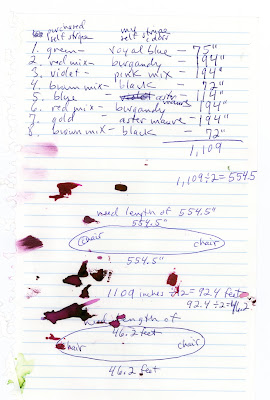 purchased my stripe
self stripe self stripe
1. green - royal blue - 75"
2. red mix - burgandy - 194"
3. violet - pink mix - 194"
4. brown mix - black - 72"
5. blue - violet aster mauve - 194"
6. red mix - burgandy - 194"
7. gold - aster mauve - 114"
8. brown mix - black - 72"
1,109
1,109÷2 = 554.5
need length of 554.5"
554.5"
chair chair
554.5"
1109 inches ÷12 = 92.4 feet
92.4 ÷2 = 46.2
need length of
46.2 feet
chair chair
46.2 feet